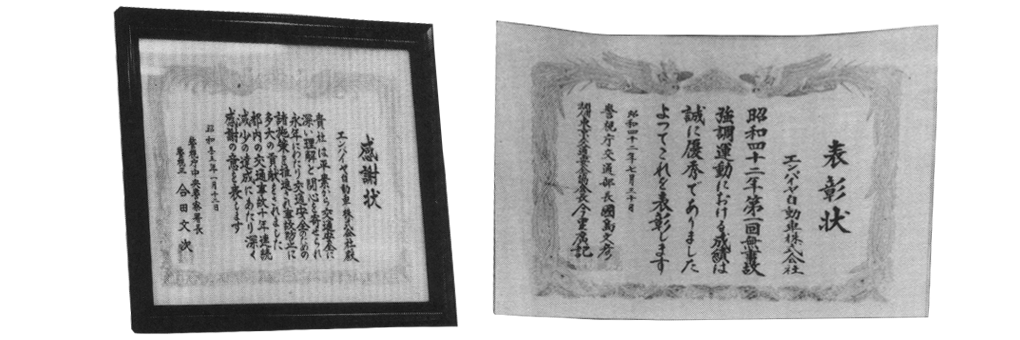 感謝状
エンパイヤ自動車株式会社殿
貴社は平素から交通安全に
深い理解と関心を寄せられ
永年にわたり交通安全のための
諸施策を推進され事故防止に
多大の貢献をされました
都内の交通事故十年連続
減少の達成にあたり深く
感謝の意を表します
昭和五十五年一月十二日
警視庁中央警察署長
警視正 合田文次
表彰状
エンパイヤ自動車株式会社
昭和四十二年第一回無事故
強調運動における成績は
誠に優秀でありました
よってこれを表彰します
昭和四十二年七月三十日
警視庁交通部長國島文彦